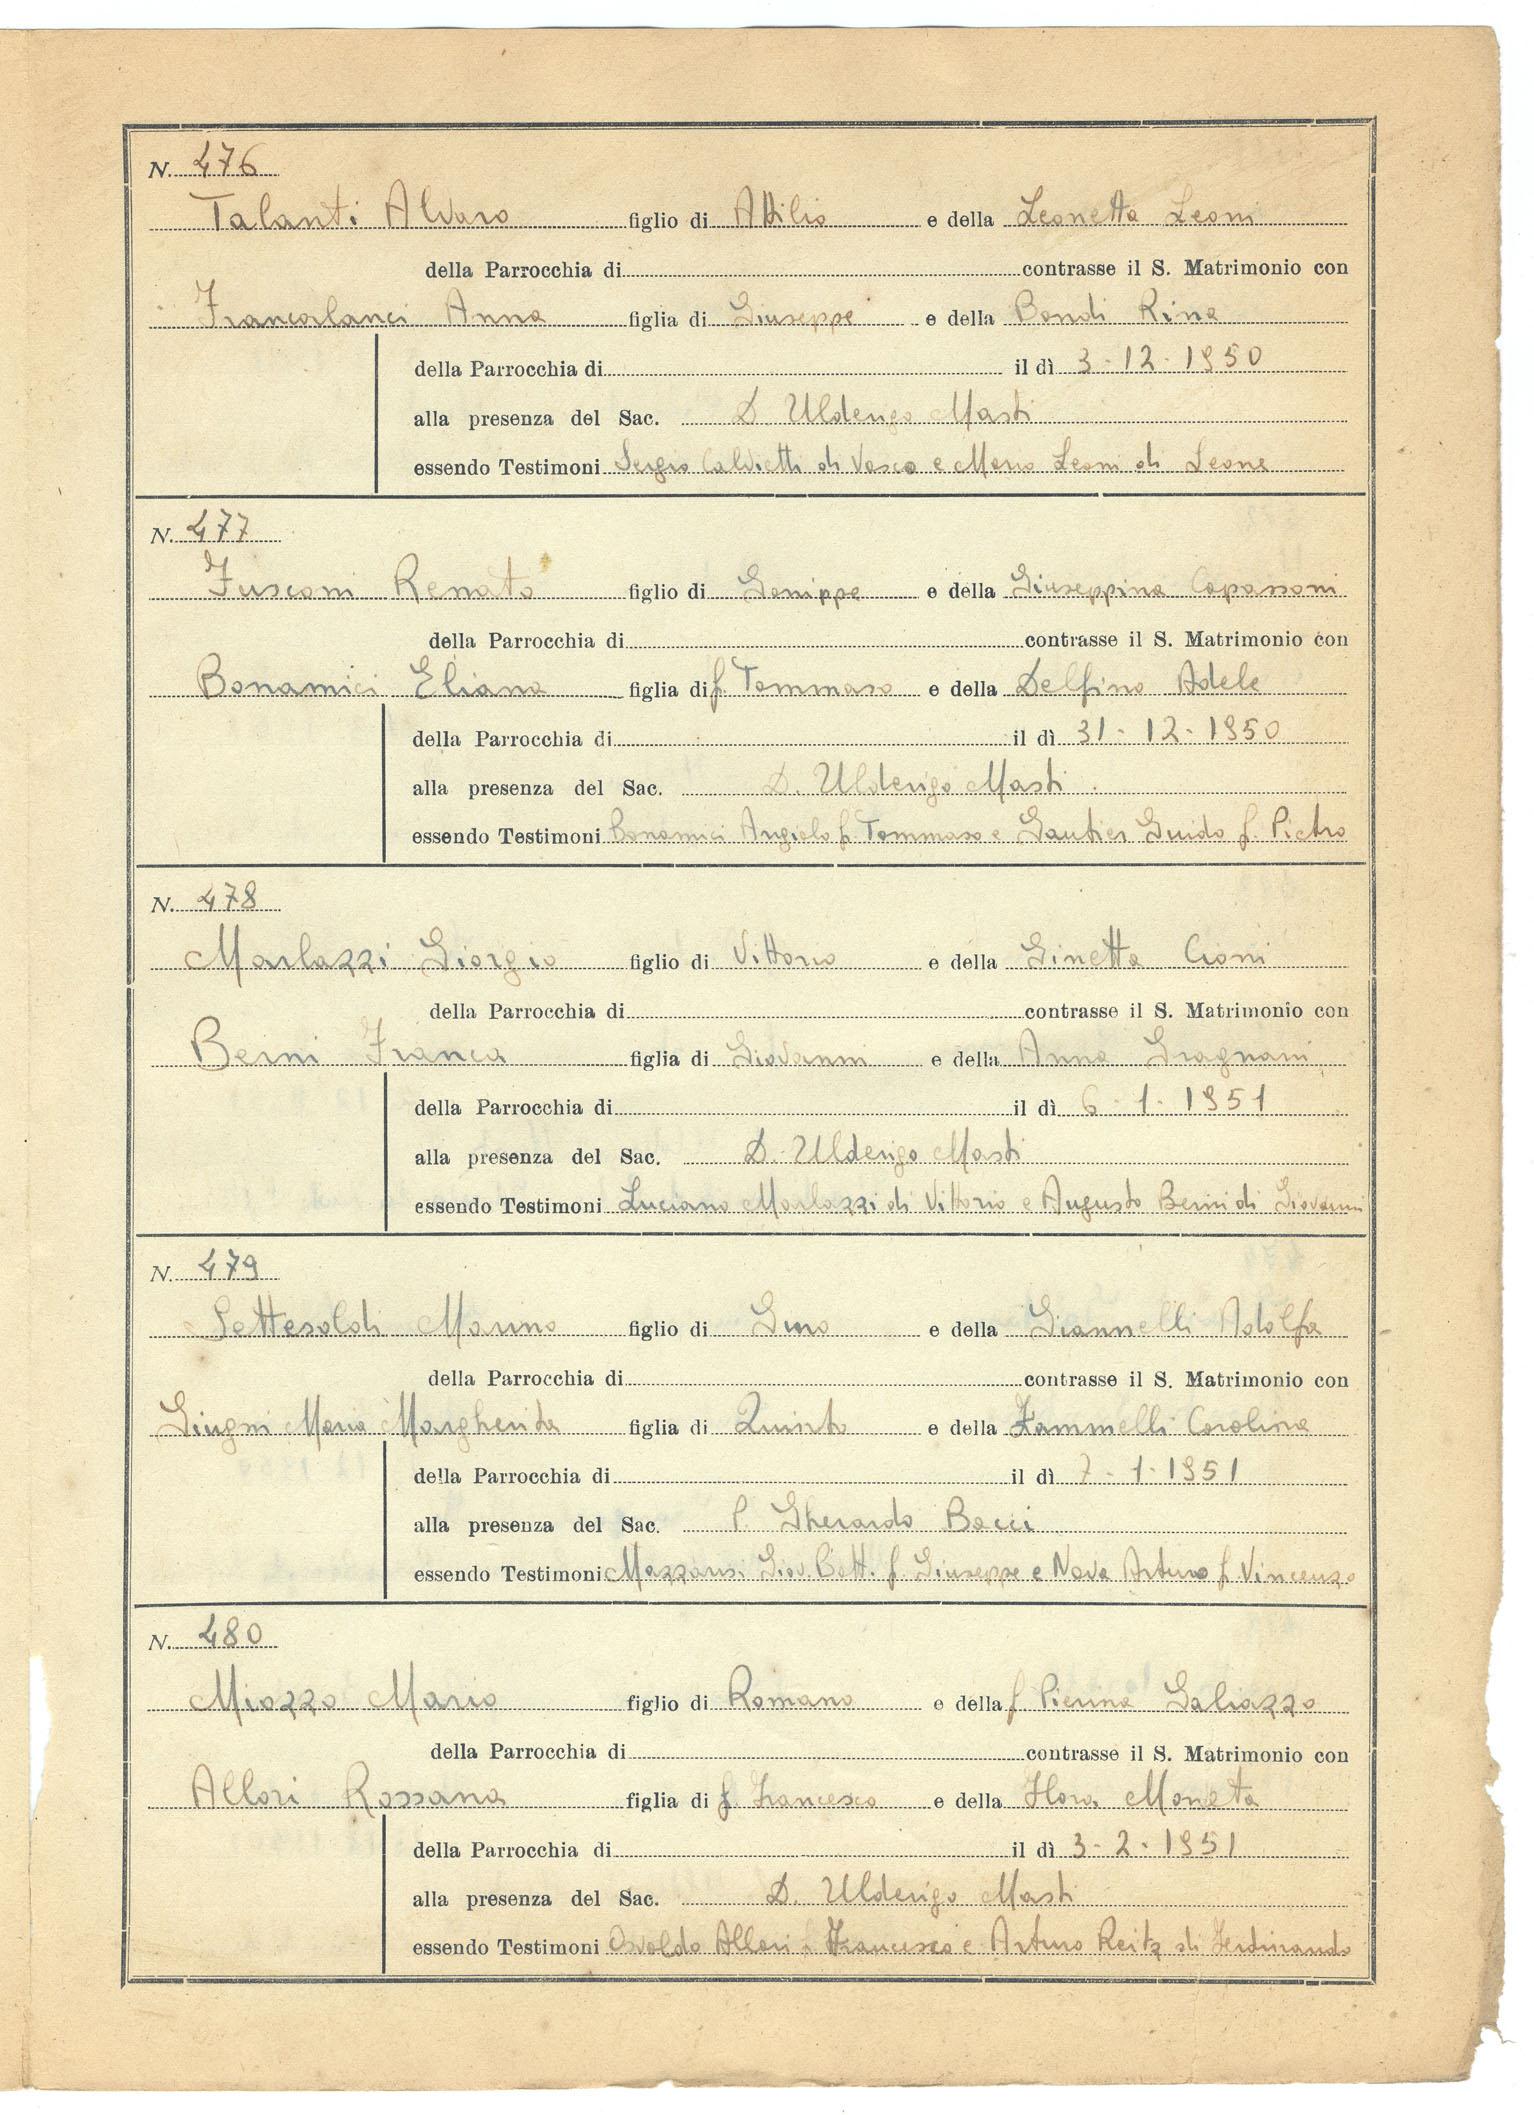 N. 476
Talanti Alvaro figlio di Attilio e della Leonetta Leoni
della Parrocchia di contrasse il S. Matrimonio con
Francalanci Anna figlia di Giuseppe e della Bondi Rina
della Parrocchia di il dì 3-12-1950
alla presenza del Sac. D. Ulderigo Masti
essendo Testimoni Sergio Calvetti di Vasco e Mario Leoni di Leone
N. 477
Fusconi Renato figlio di e della Giuseppina Capassoni
della Parrocchia di contrasse il S. Matrimonio con
Bonamici Eliana figlia di f. Tommaso e della Delfino Adele
della Parrocchia di il dì 31-12-1950
alla presenza del Sac. D. Ulderigo Masti
essendo Testimoni Bonamici Angiolo f. Tommaso e Gautier Guido f. Pietro
N. 478
Marlazzi Giorgio figlio di Vittorio e della Ginetta Cioni
della Parrocchia di contrasse il S. Matrimonio con
Berni Franca figlia di Giovanni e della Anna Gragnani
della Parrocchia di il dì 6-1-1951
alla presenza del Sac. D. Ulderigo Masti
essendo Testimoni Luciano Marlazzi di Vittorio e Augusto Berni di Giovanni
N. 479
Settesoldi Marino figlio di Gino e della Giannelli Adolfa
della Parrocchia di contrasse il S. Matrimonio con
Giugni Maria Margherita figlia di Quinto e della Zammelli Carolina
della Parrocchia di il dì 7-1-1951
alla presenza del Sac. P. Gherardo Bacci
essendo Testimoni Giov. Batt. f. Giuseppe e Nava Arturo f. Vincenzo
N. 480
Miozzo Mario figlio di Romano e della f. Pierina Galiazzo
della Parrocchia di contrasse il S. Matrimonio con
Allori Rossana figlia di f. Francesco e della Flora Moneta
della Parrocchia di il dì 3-2-1951
alla presenza del Sac. D. Ulderigo Masti
essendo Testimoni Osvaldo Allori f. Francesco e Arturo Reitz di Ferdinando